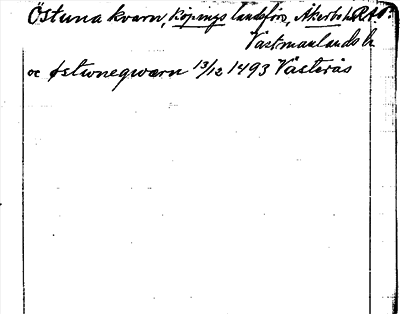 Östuna kvarn, Köpings landsförs, Åkerbo h. RAP.
Västmanlands l.
oc østwneqwærn 13/12 1493 Västerås